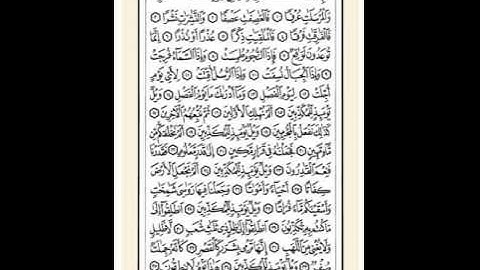 وَٱلْمُرْسَلَٰتِ عُرْفًا ١ فَٱلْعَٰصِفَٰتِ عَصْفًا ٢ وَٱلنَّٰشِرَٰتِ نَشْرًا ٣
فَٱلْفَٰرِقَٰتِ فَرْقًا ٤ فَٱلْمُلْقِيَٰتِ ذِكْرًا ٥ عُذْرًا أَوْ نُذْرًا ٦ إِنَّمَا
تُوعَدُونَ لَوَٰقِعٌ ٧ فَإِذَا ٱلنُّجُومُ طُمِسَتْ ٨ وَإِذَا ٱلسَّمَآءُ فُرِجَتْ
٩ وَإِذَا ٱلْجِبَالُ نُسِفَتْ ١٠ وَإِذَا ٱلرُّسُلُ أُقِّتَتْ ١١ لِأَيِّ يَوْمٍ
أُجِّلَتْ ١٢ لِيَوْمِ ٱلْفَصْلِ ١٣ وَمَآ أَدْرَىٰكَ مَا يَوْمُ ٱلْفَصْلِ ١٤ وَيْلٌ
يَوْمَئِذٍ لِّلْمُكَذِّبِينَ ١٥ أَلَمْ نُهْلِكِ ٱلْأَوَّلِينَ ١٦ ثُمَّ نُتْبِعُهُمُ ٱلْءَاخِرِينَ ١٧
كَذَٰلِكَ نَفْعَلُ بِٱلْمُجْرِمِينَ ١٨ وَيْلٌ يَوْمَئِذٍ لِّلْمُكَذِّبِينَ ١٩ أَلَمْ نَخْلُقكُّم مِّن
مَّآءٍ مَّهِينٍ ٢٠ فَجَعَلْنَٰهُ فِى قَرَارٍ مَّكِينٍ ٢١ إِلَىٰ قَدَرٍ مَّعْلُومٍ ٢٢ فَقَدَرْنَا
فَنِعْمَ ٱلْقَٰدِرُونَ ٢٣ وَيْلٌ يَوْمَئِذٍ لِّلْمُكَذِّبِينَ ٢٤ أَلَمْ نَجْعَلِ ٱلْأَرْضَ
كِفَاتًا ٢٥ أَحْيَآءً وَأَمْوَٰتًا ٢٦ وَجَعَلْنَا فِيهَا رَوَٰسِىَ شَٰمِخَٰتٍ
وَأَسْقَيْنَٰكُم مَّآءً فُرَاتًا ٢٧ وَيْلٌ يَوْمَئِذٍ لِّلْمُكَذِّبِينَ ٢٨ ٱنطَلِقُوٓا۟ إِلَىٰ
مَا كُنتُم بِهِۦ تُكَذِّبُونَ ٢٩ ٱنطَلِقُوٓا۟ إِلَىٰ ظِلٍّ ذِى ثَلَٰثِ شُعَبٍ ٣٠ لَّا ظَلِيلٍ
وَلَا يُغْنِى مِنَ ٱللَّهَبِ ٣١ إِنَّهَا تَرْمِى بِشَرَرٍ كَٱلْقَصْرِ ٣٢ كَأَنَّهُۥ جِمَٰلَتٌ
صُفْرٌ ٣٣ وَيْلٌ يَوْمَئِذٍ لِّلْمُكَذِّبِينَ ٣٤ هَٰذَا يَوْمُ لَا يَنطِقُونَ ٣٥